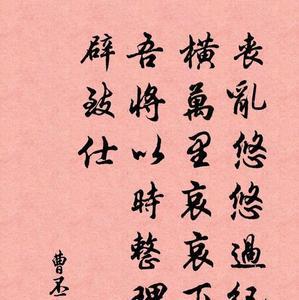 喪亂悠悠過紀
橫萬里哀哀下
吾將以時整理
辟致仕
曹丕